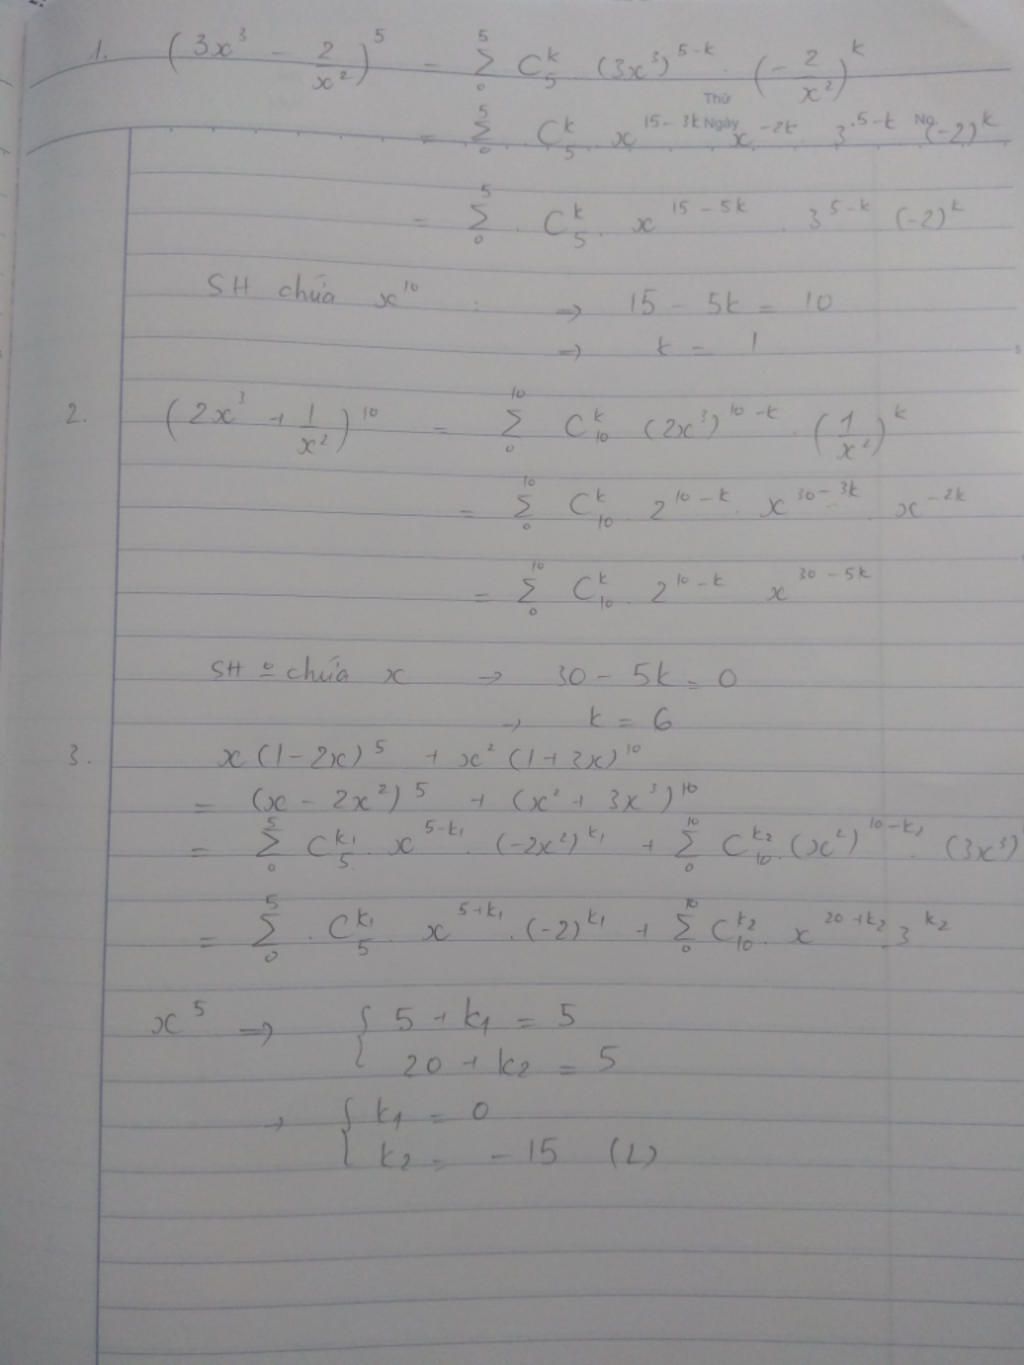 1. (3x³ - 2/x²)⁵ = Σ₀⁵ C₅ᵏ (3x³)⁵⁻ᵏ . (-2/x²)ᵏ
Thứ
Ngày No.
= Σ₀⁵ C₅ᵏ . x¹⁵⁻³ᵏ x⁻²ᵏ . 3⁵⁻ᵏ (-2)ᵏ
= Σ₀⁵ . C₅ᵏ . x¹⁵⁻⁵ᵏ . 3⁵⁻ᵏ (-2)ᵏ
SH chứa x¹⁰ : => 15 - 5k = 10
=> k = 1
2. (2x³ + 1/x²)¹⁰ = Σ₀¹⁰ C₁₀ᵏ (2x³)¹⁰⁻ᵏ . (1/x²)ᵏ
= Σ₀¹⁰ C₁₀ᵏ 2¹⁰⁻ᵏ . x³⁰⁻³ᵏ . x⁻²ᵏ
= Σ₀¹⁰ C₁₀ᵏ . 2¹⁰⁻ᵏ x³⁰⁻⁵ᵏ
SH chứa x → 30 - 5k = 0
→ k = 6
3. x(1-2x)⁵ + x²(1+3x)¹⁰
= (x - 2x²)⁵ + (x² + 3x³)¹⁰
= Σ₀⁵ C₅^(k₁) . x^(5-k₁) . (-2x²)^(k₁) + Σ₀¹⁰ C₁₀^(k₂) . (x²)^(10-k₂) . (3x³)
= Σ₀⁵ . C₅^(k₁) . x^(5+k₁) . (-2)^(k₁) + Σ₀¹⁰ C₁₀^(k₂) . x^(20+k₂) . 3^(k₂)
x⁵ => { 5 + k₁ = 5
20 + k₂ = 5
→ { k₁ = 0
k₂ = -15 (L)